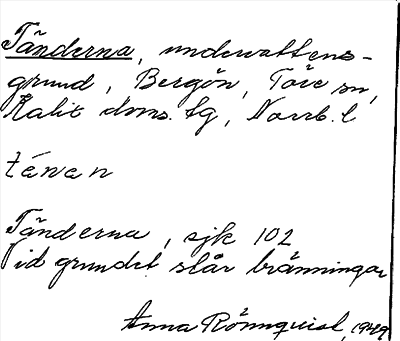 Tänderna, undervattens-
grund, Bergön, Töre sn,
Kalix doms. tg, Norrb. l
tánan
Tänderna, sjk 102
Vid grundet slår bränningar
Anna Rönnquist, 1949